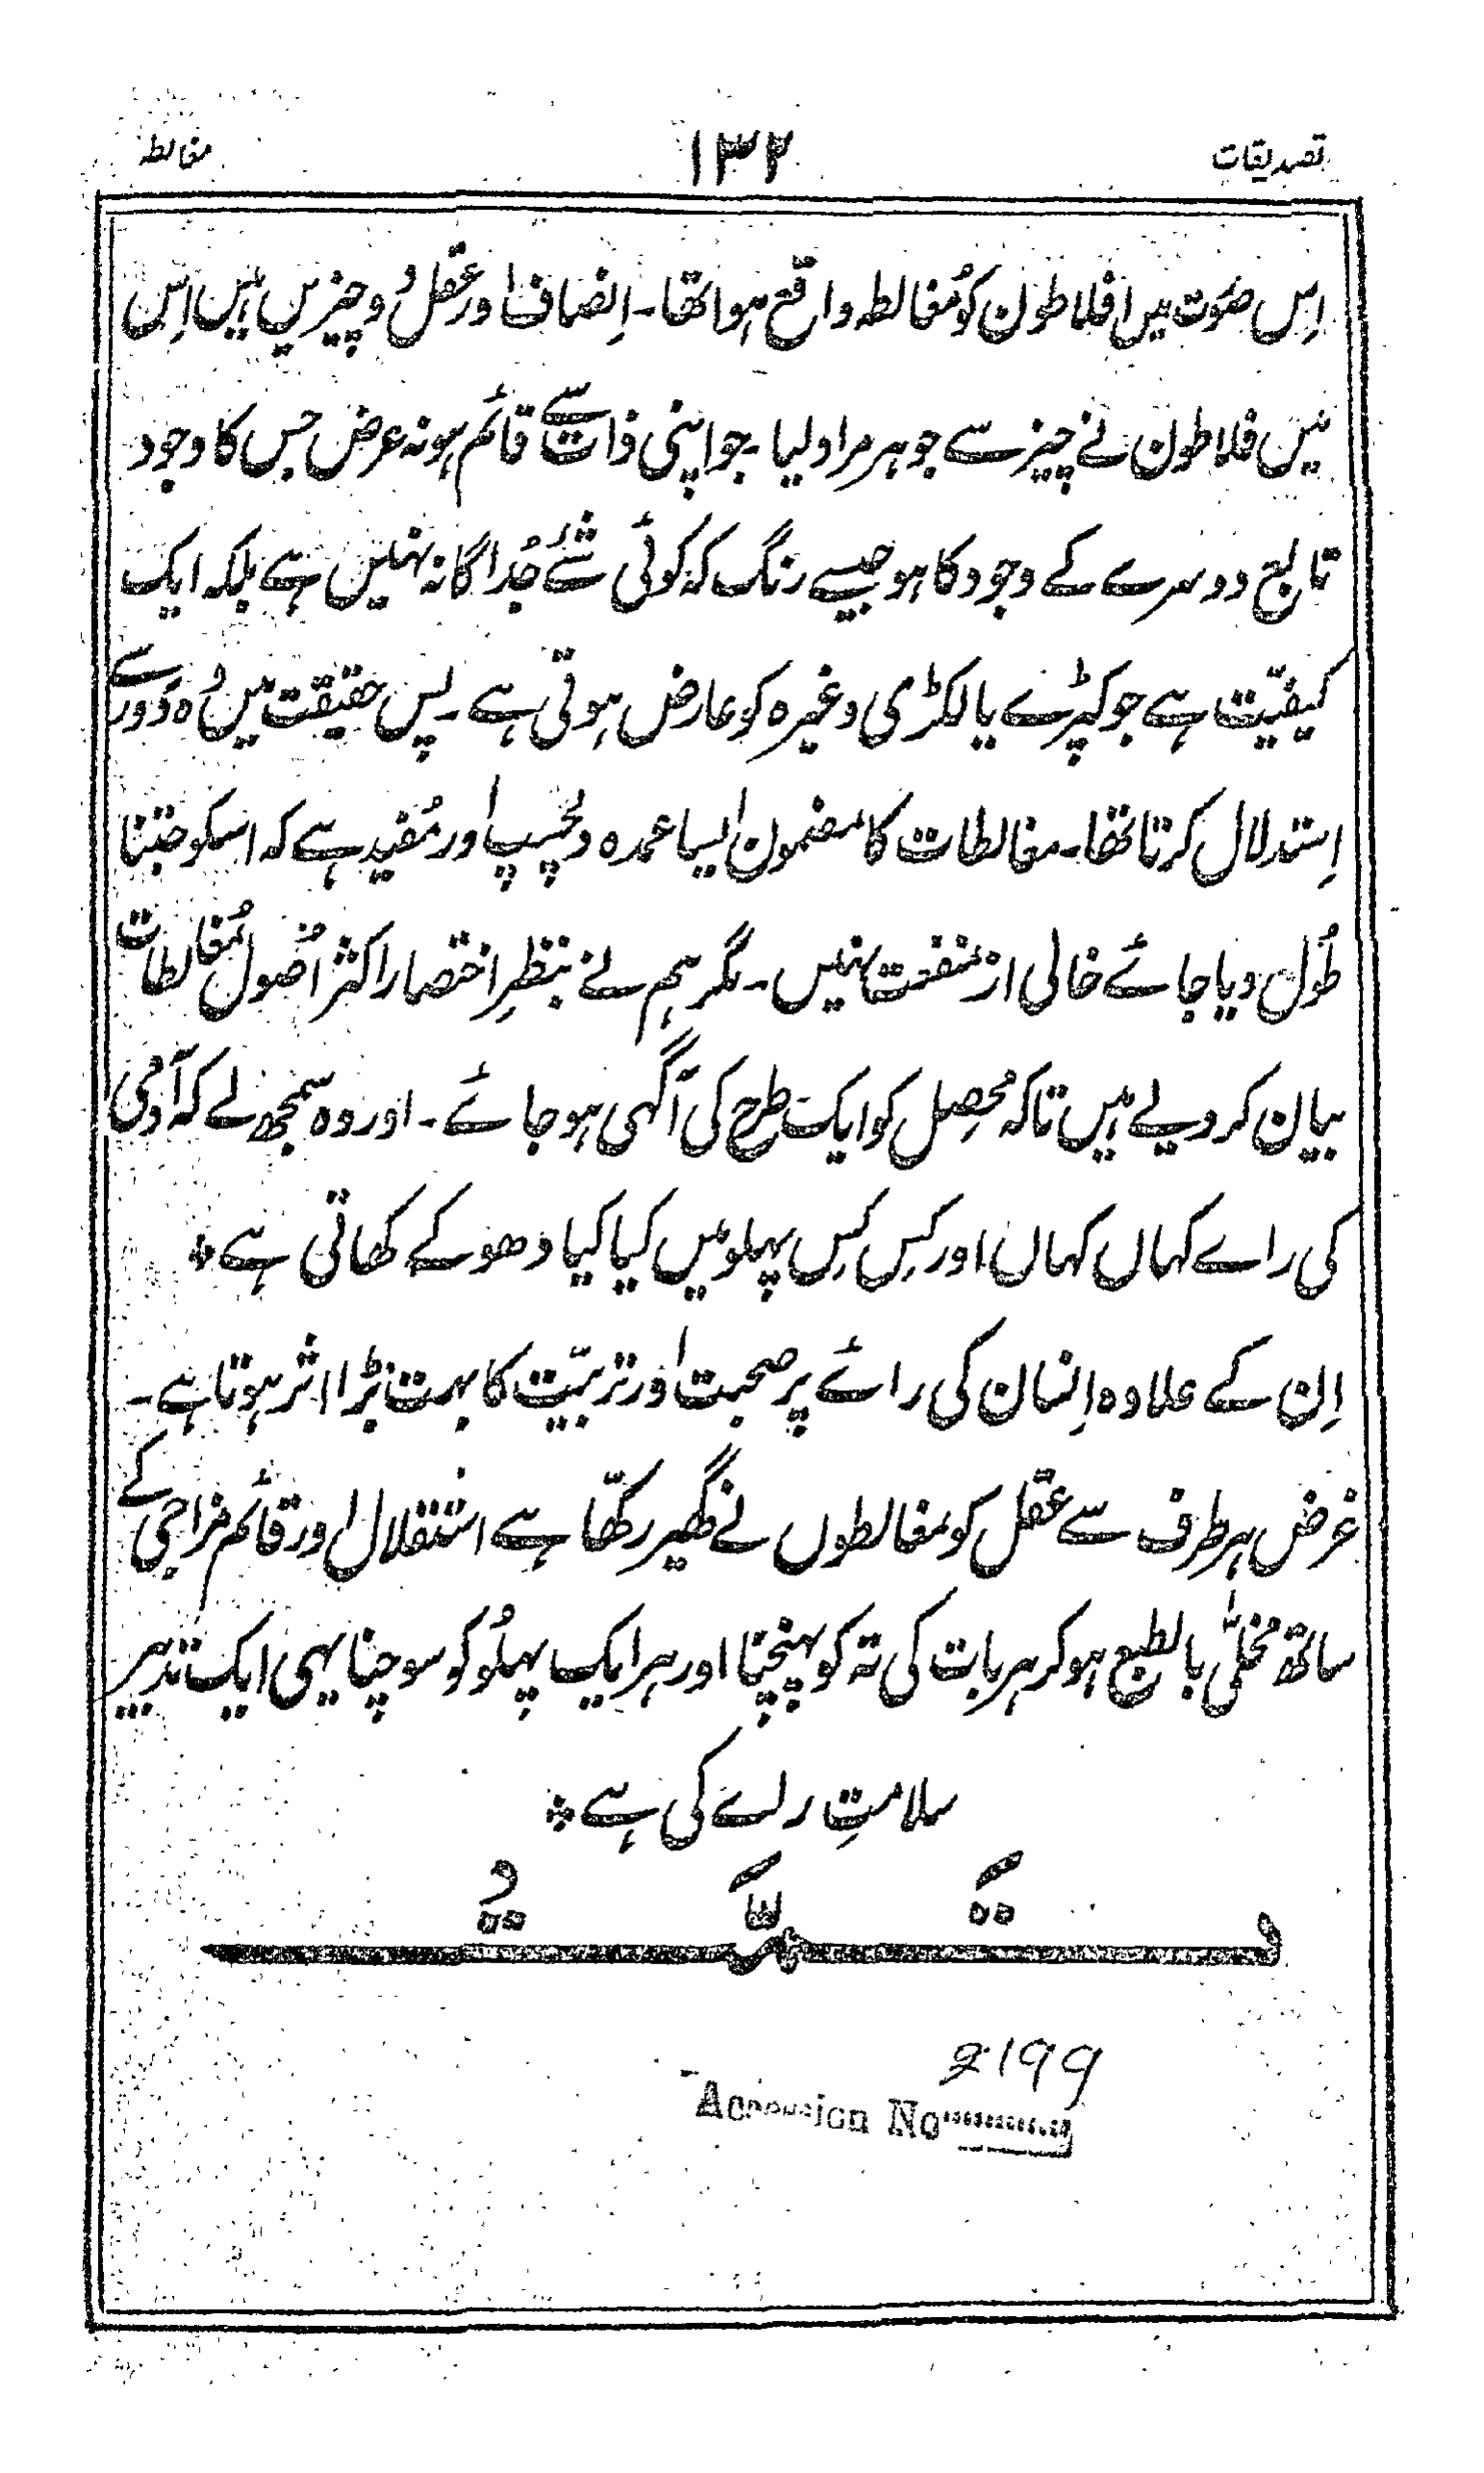 تصدیقات ۱۳۲ مغالطہ
اِس صُورت میں افلاطون کو مُغالطہ واقع ہوا تھا۔ اِنصاف اور عقل دو چیزیں ہیں اِس
میں فلاطون نے چیز سے جوہر مراد لیا۔ جو اپنی ذات سے قائم ہو نہ عرض جس کا وجود
تابع دوسرے کے وجود کا ہو جیسے رنگ کہ کوئی شئے جُداگانہ نہیں ہے بلکہ ایک
کیفیّت ہے جو کپڑے یا لکڑی وغیرہ کو عارض ہوتی ہے۔ پس حقیقت میں وُہ دَور سے
اِستدلال کرتا تھا۔ مغالطات کا مضمون ایسا عمدہ دلچسپ اور مُفید ہے کہ اسکو جتنا
طُول دیا جائے خالی از منفعت نہیں۔ مگر ہم نے بنظرِ اختصار اکثر اُصول مُغالطات
بیان کر دیے ہیں تاکہ مُحصِل کو ایک طرح کی آگہی ہو جائے۔ اور وہ سمجھ لے کہ آدمی
کی راے کہاں کہاں اور کِس کِس پہلو میں کیا کیا دھوکے کھاتی ہے ٭
اِن کے علاوہ اِنسان کی رائے پر صحبت اور تربیّت کا بہت بڑا اثر ہوتا ہے۔
غرض ہر طرف سے عقل کو مغالطوں نے گھیر رکھّا ہے استقلال اور قائم مزاجی کے
ساتھ مخلّٰی بالطبع ہو کر ہر بات کی تہ کو پہنچنا اور ہر ایک پہلُو کو سوچنا یہی ایک تدبیر
سلامتِ راے کی ہے ٭
تَمَّتْ
2199
Accession No